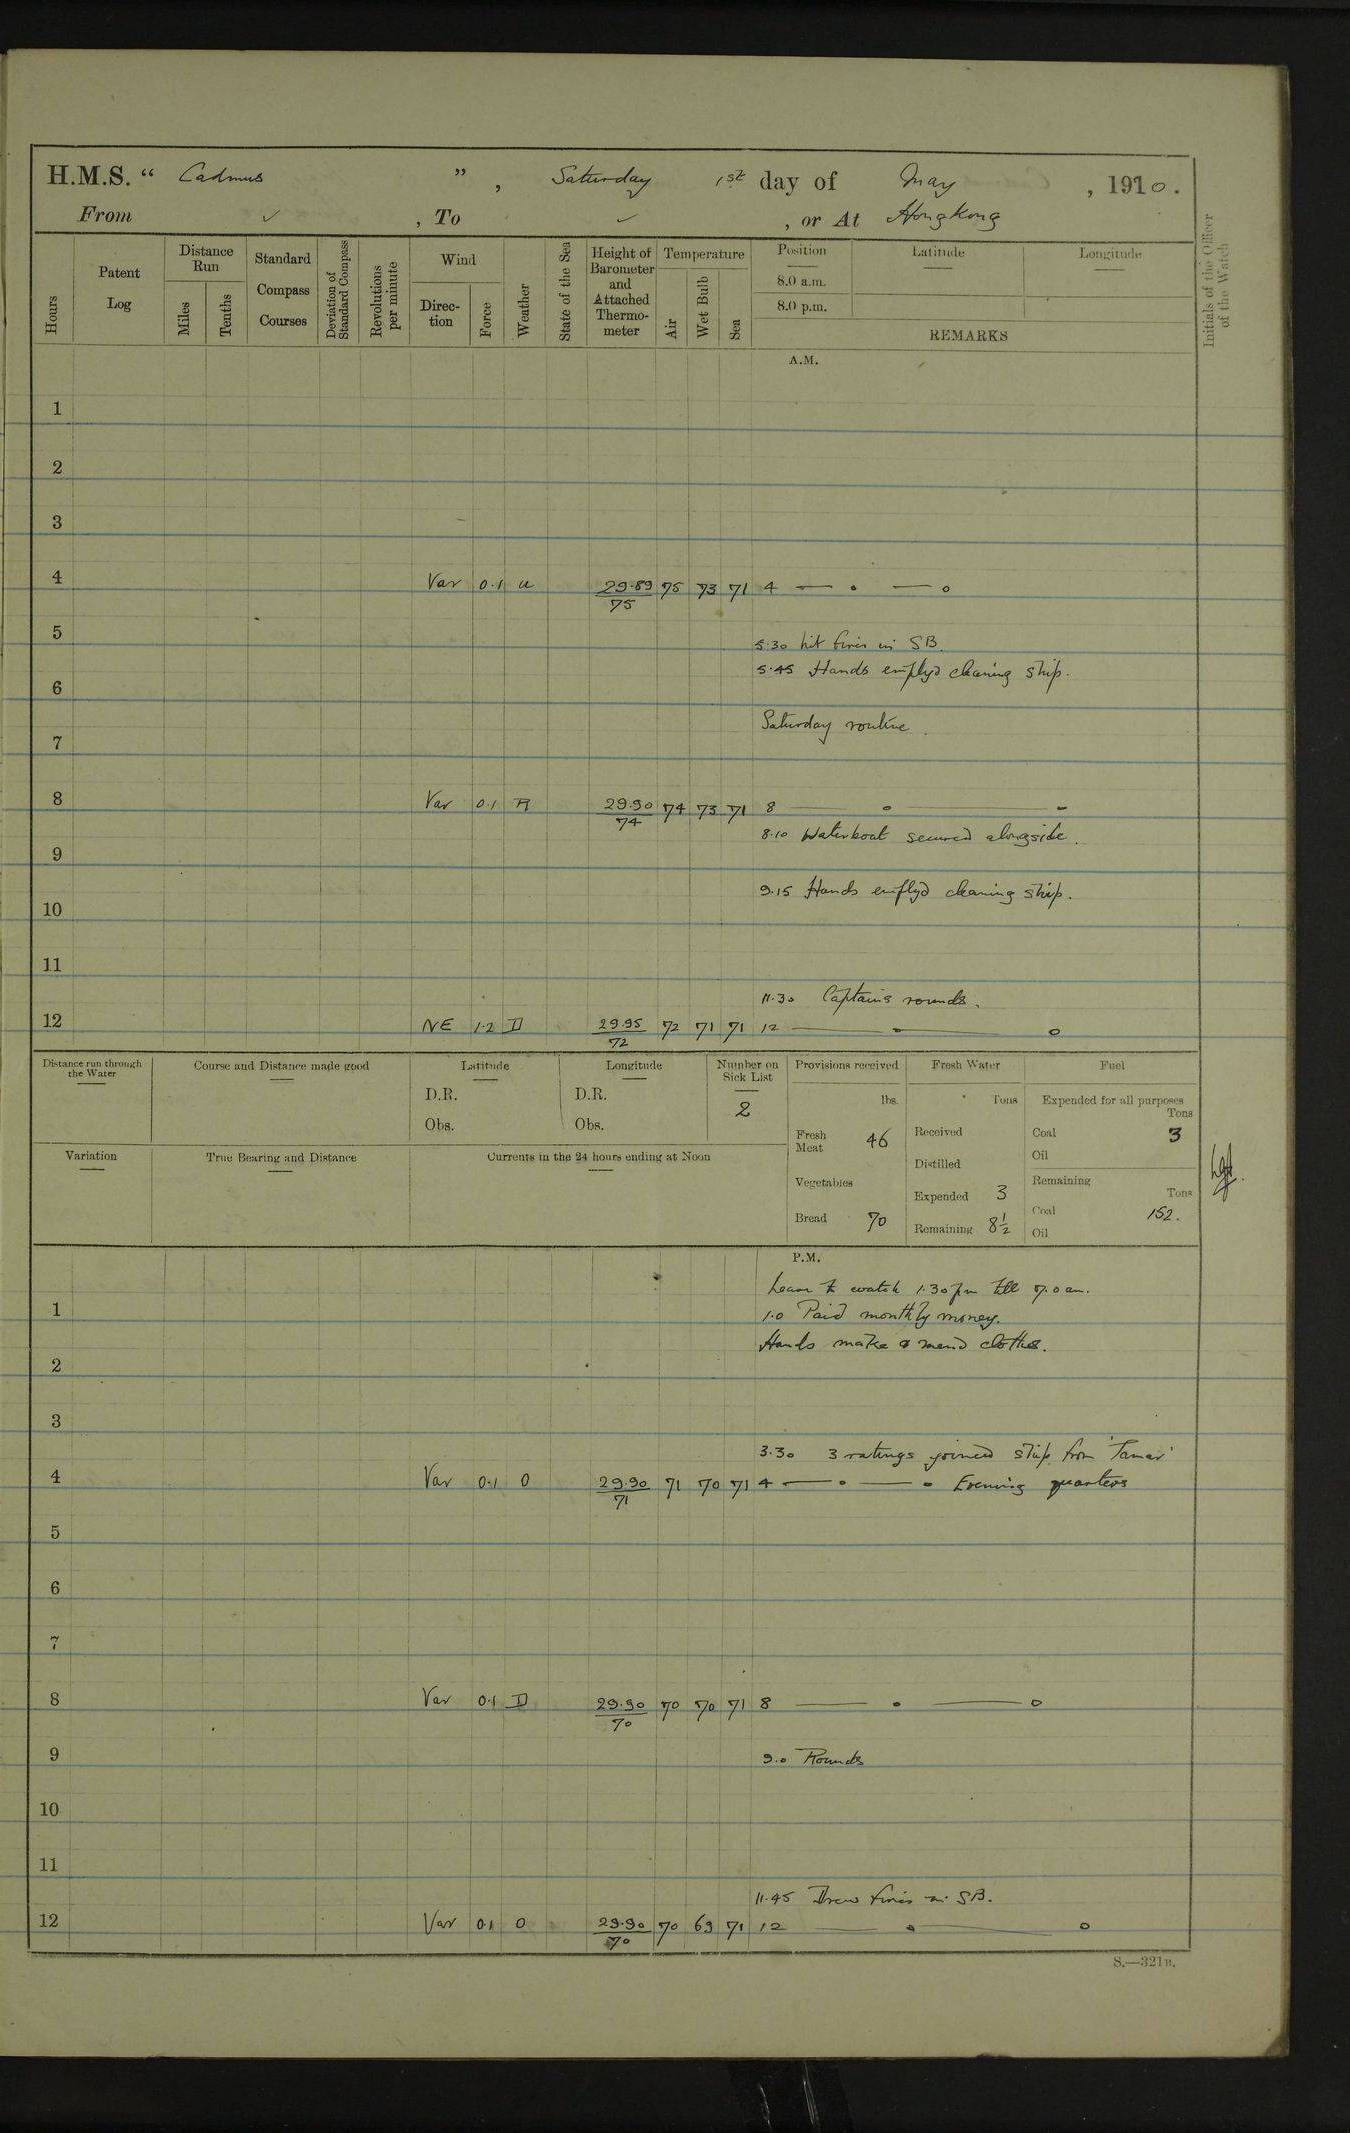 H.M.S. “ Cadmus ” , Saturday 1st day of May , 1910.
From ✓ , To ✓ , or At Hongkong
Hours
Patent Log
Distance Run
Miles
Tenths
Standard Compass Courses
Deviation of Standard Compass
Revolutions per minute
Wind
Direction
Force
Weather
State of the Sea
Height of Barometer and Attached Thermometer
Temperature
Air
Wet Bulb
Sea
Position
8.0 a.m.
8.0 p.m.
Latitude
Longitude
REMARKS
Initials of the Officer of the Watch
A.M.
1
2
3
4 Var 0.1 u 29.89/75 75 73 71 4
5
5.30 Lit fires in SB.
5.45 Hands employd cleaning ship.
6
Saturday routine.
7
8 Var 0.1 R 29.90/74 74 73 71 8
8.10 Waterboat secured alongside.
9
9.15 Hands employd cleaning ship.
10
11
11.30 Captains rounds.
12 NE 1.2 D 29.95/72 72 71 71 12
Distance run through the Water
Course and Distance made good
Latitude
D.R.
Obs.
Longitude
D.R.
Obs.
Number on Sick List
2
Provisions received
lbs.
Fresh Meat 46
Vegetables
Bread 70
Fresh Water
Tons
Received
Distilled
Expended 3
Remaining 8½
Fuel
Expended for all purposes
Tons
Coal 3
Oil
Remaining
Tons
Coal 152.
Oil
Variation
True Bearing and Distance
Currents in the 24 hours ending at Noon
P.M.
Leave to watch 1.30 pm till 7.0 am.
1 1.0 Paid monthly money.
Hands make & mend clothes.
2
3
3.30 3 ratings joined ship from 'Tamar'
4 Var 0.1 O 29.90/71 71 70 71 4 Evening quarters
5
6
7
8 Var 0.1 D 29.90/70 70 70 71 8
9 9.0 Rounds
10
11
11.45 Drew fires in SB.
12 Var 0.1 O 29.90/70 70 69 71 12
S.—321B.